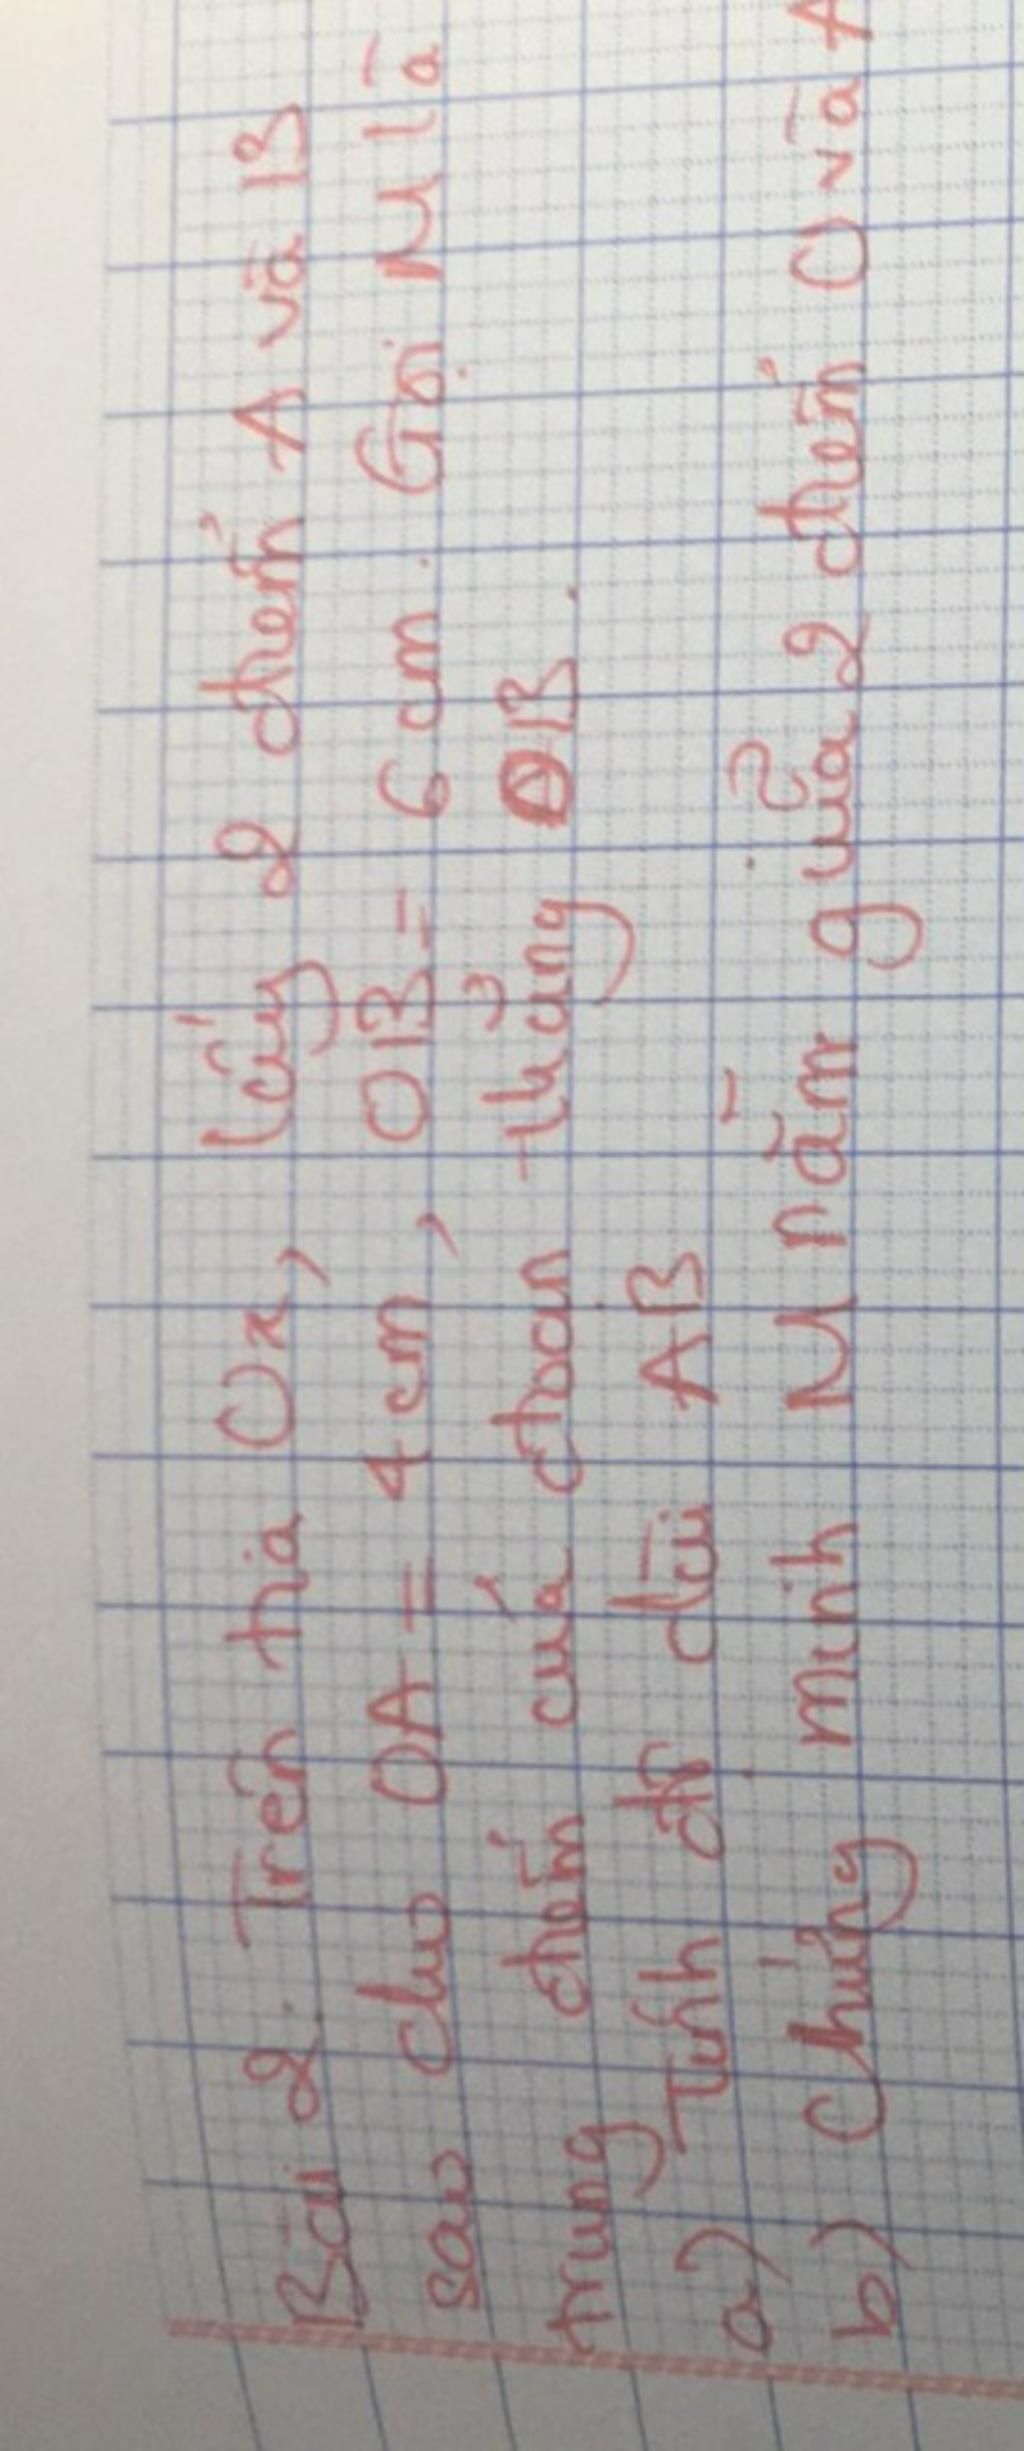 Bài 2. Trên tia Ox, lấy 2 điểm A và B
sao cho OA = 4 cm, OB = 6 cm. Gọi M là
trung điểm của đoạn thẳng OB.
a) Tính độ dài AB
b) Chứng minh M nằm giữa 2 điểm O và A